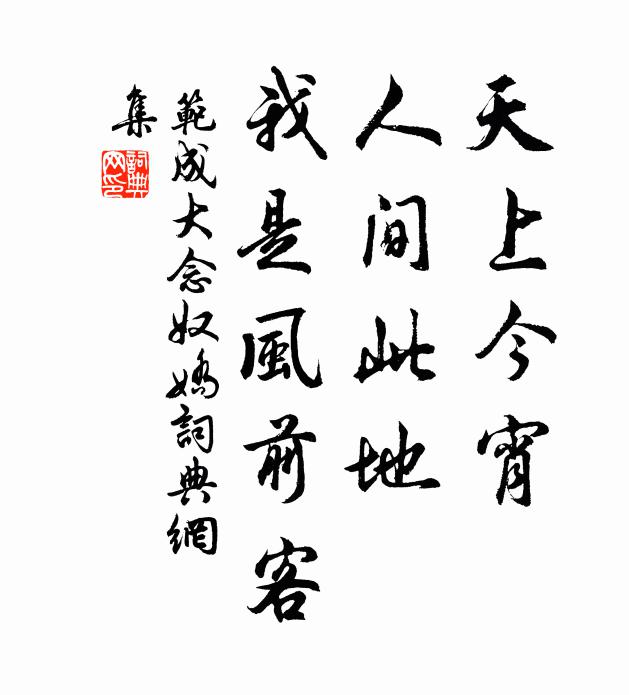 天上今宵
人間此地
我是風前客
範成大念奴嬌詞典網
集
詞典网印